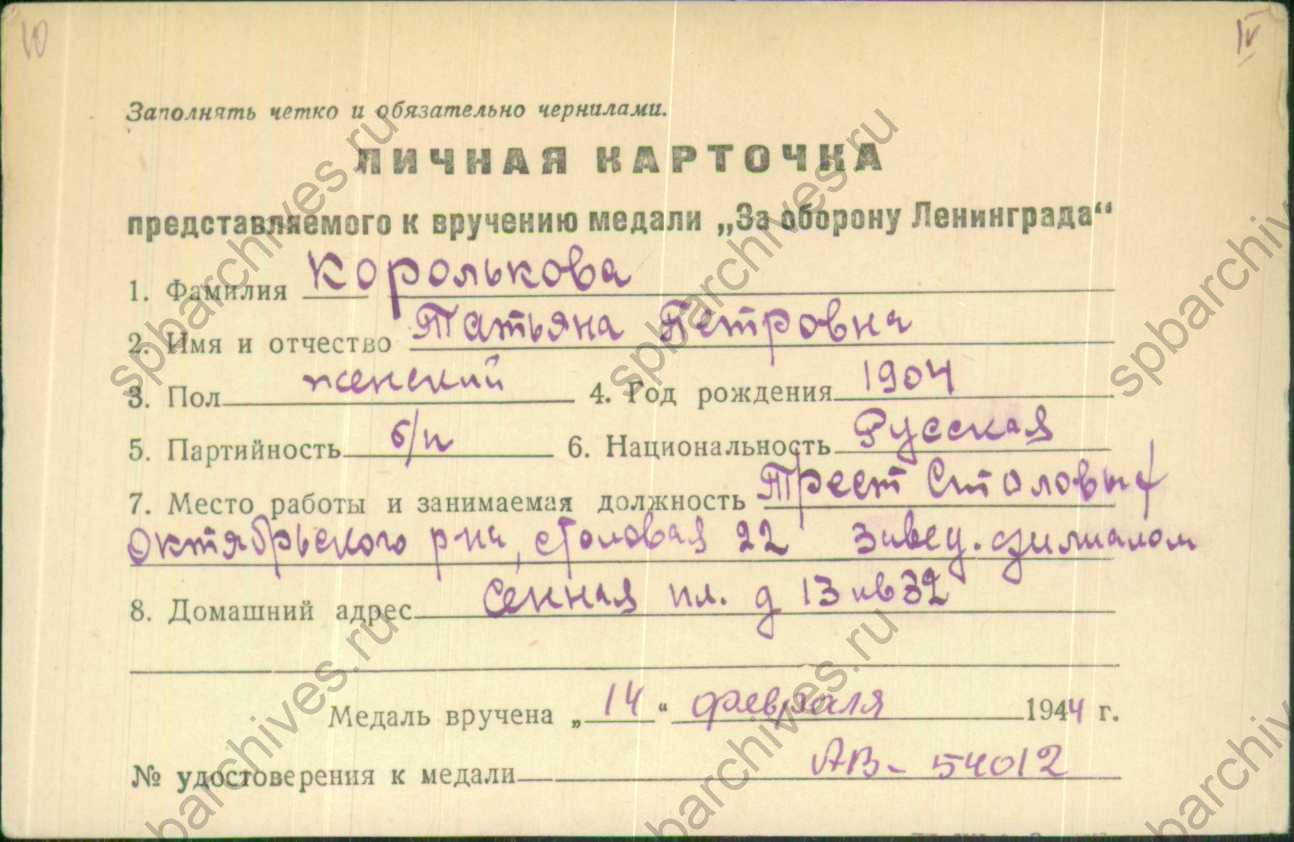 10
IV
Заполнять четко и обязательно чернилами.
ЛИЧНАЯ КАРТОЧКА
представляемого к вручению медали „За оборону Ленинграда“
1. Фамилия Королькова
2. Имя и отчество Татьяна Петровна
3. Пол женский 4. Год рождения 1904
5. Партийность б/п 6. Национальность Русская
7. Место работы и занимаемая должность Трест Столовых
Октябрьского р-на, столовая 22 Завед. филиалом
8. Домашний адрес Сенная пл. д 13 кв 32
Медаль вручена „14“ февраля 1944 г.
№ удостоверения к медали АВ - 54012
spbarchives.ru